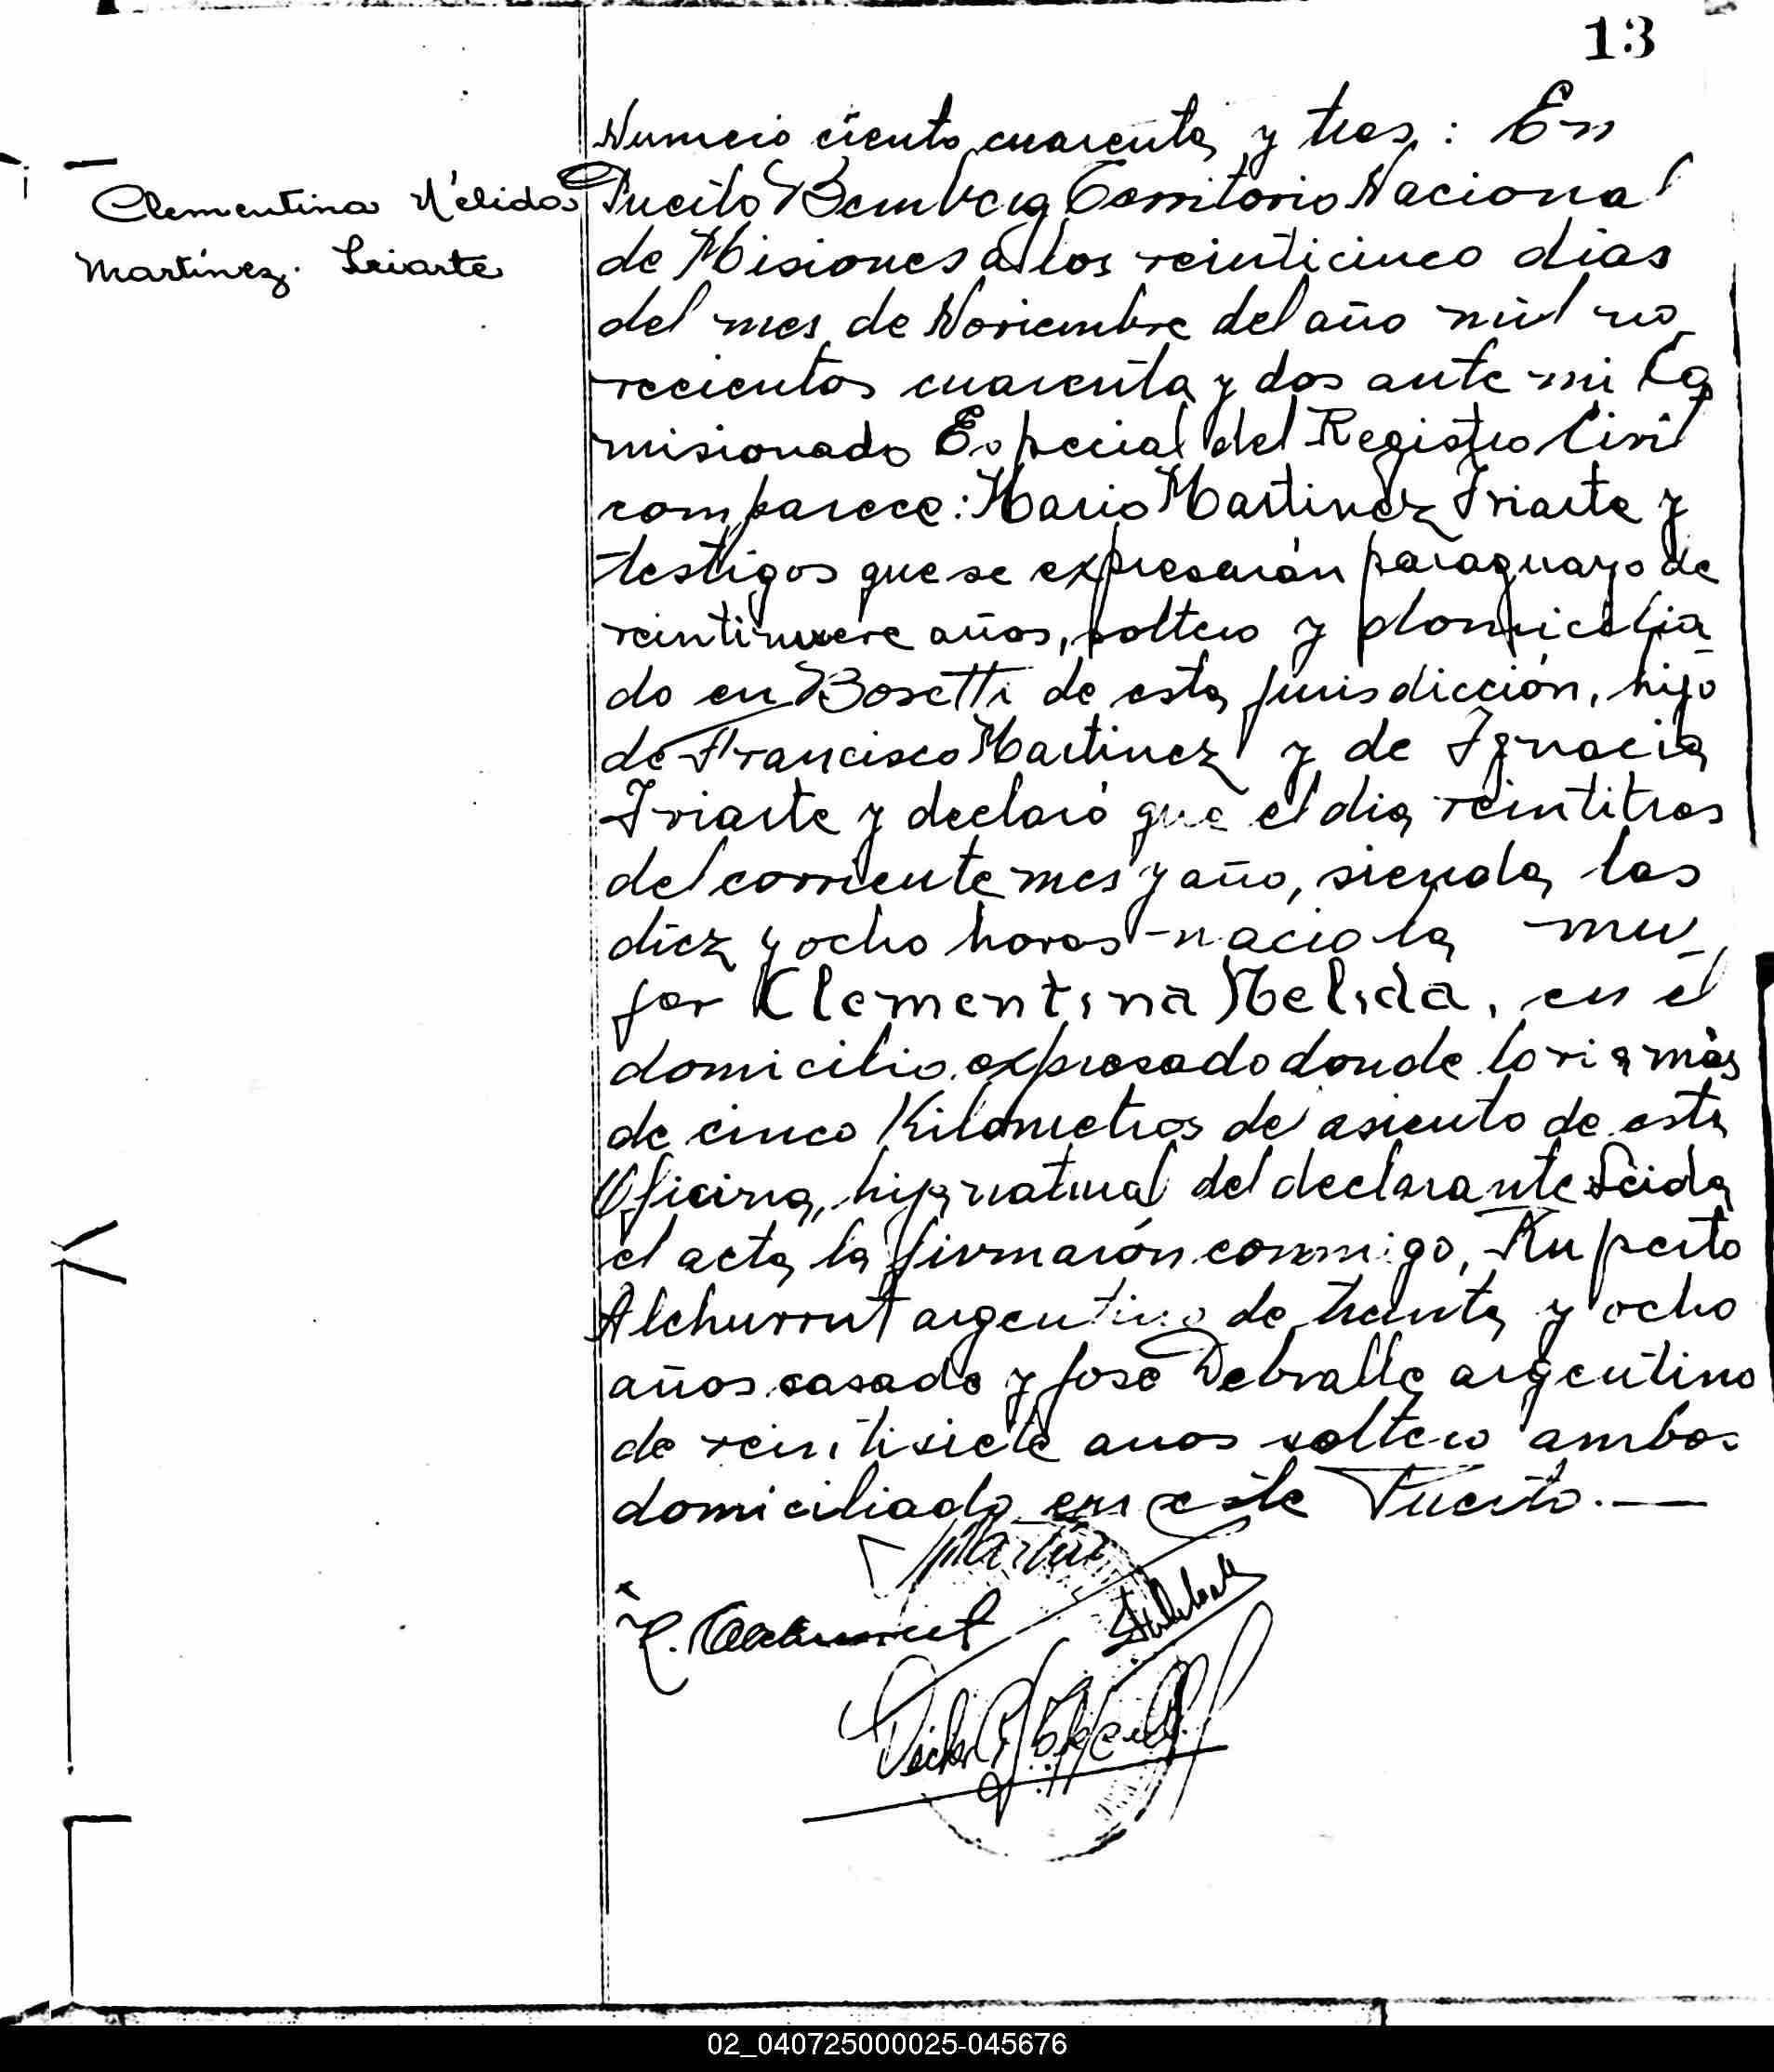 13
Clementina Nélida
Martínez. Iriarte
Numero ciento cuarenta y tres: En
Puerto Bemberg Territorio Nacional
de Misiones a los veinticinco dias
del mes de Noviembre del año mil no
vecientos cuarenta y dos ante mi Co
misionado Especial del Registro Civil
comparece: Mario Martinez Iriarte y
testigos que se expresarán paraguayo de
veintinueve años, soltero y domicilia
do en Bosetti de esta jurisdicción, hijo
de Francisco Martinez y de Ignacia
Iriarte y declaró que el dia veintitres
del corriente mes y año, siendo las
diez y ocho horas nacio la mu
jer Clementina Nelida, en el
domicilio expresado donde lo vi a más
de cinco Kilometros de asiento de esta
Oficina, hija natural del declarante Leida
el acta la firmarón conmigo, Ruperto
Alchurrut argentino de treinta y ocho
años casado y José Debralle argentino
de veintisiete anos soltero ambos
domiciliado en este Puerto.—
R. Alchurrut
02_040725000025-045676